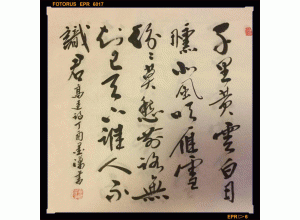 FOTORUS EPR 6017
千里黄雲白日
曛北風吹雁雪
紛紛莫愁前路無
知己天下誰人不
識君 高適詩丁酉
EPR▷-6